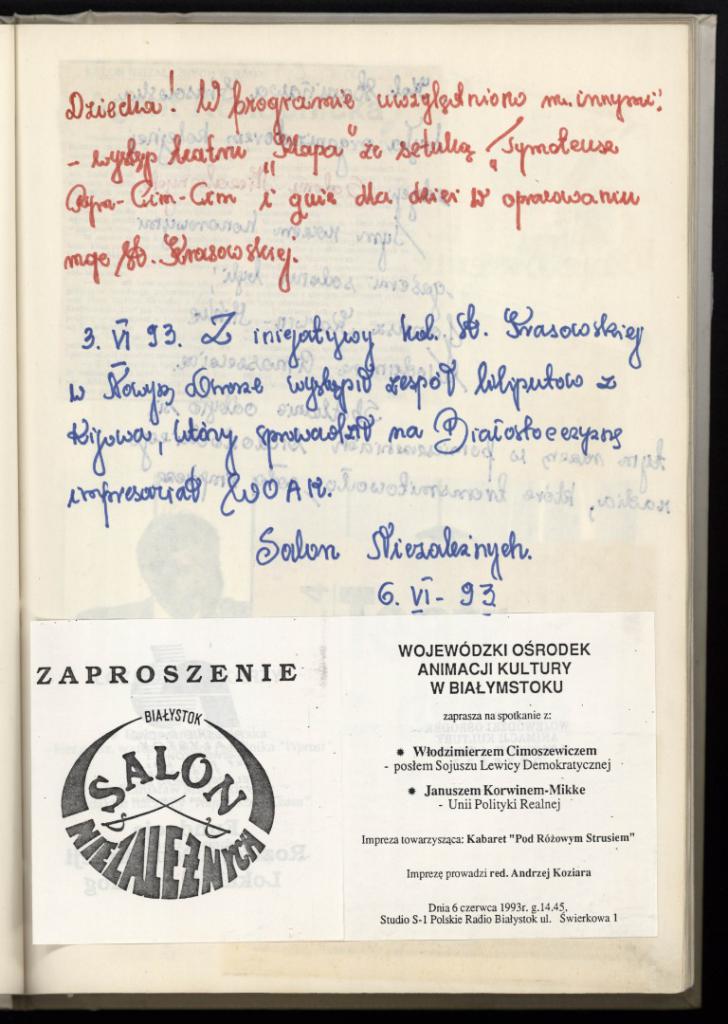 Dziecka! W programie uwzględniono m. innymi:
- występ teatru "Klapa" ze sztuką "Tymoteusz
Rym-Cim-Cim i quiz dla dzieci w opracowaniu
mgr B. Krasowskiej.
3. VI 93. Z inicjatywy kol. B. Krasowskiej
w Nowym Dworze wystąpił zespół liliputów z
Kijowa, który sprowadził na Białostocczyznę
impresariat WOAK.
Salon Niezależnych.
6. VI - 93
ZAPROSZENIE
BIAŁYSTOK
SALON
NIEZALEŻNYCH
WOJEWÓDZKI OŚRODEK
ANIMACJI KULTURY
W BIAŁYMSTOKU
zaprasza na spotkanie z:
* Włodzimierzem Cimoszewiczem
- posłem Sojuszu Lewicy Demokratycznej
* Januszem Korwinem-Mikke
- Unii Polityki Realnej
Impreza towarzysząca: Kabaret "Pod Różowym Strusiem"
Imprezę prowadzi red. Andrzej Koziara
Dnia 6 czerwca 1993r. g.14.45.
Studio S-1 Polskie Radio Białystok ul. Świerkowa 1